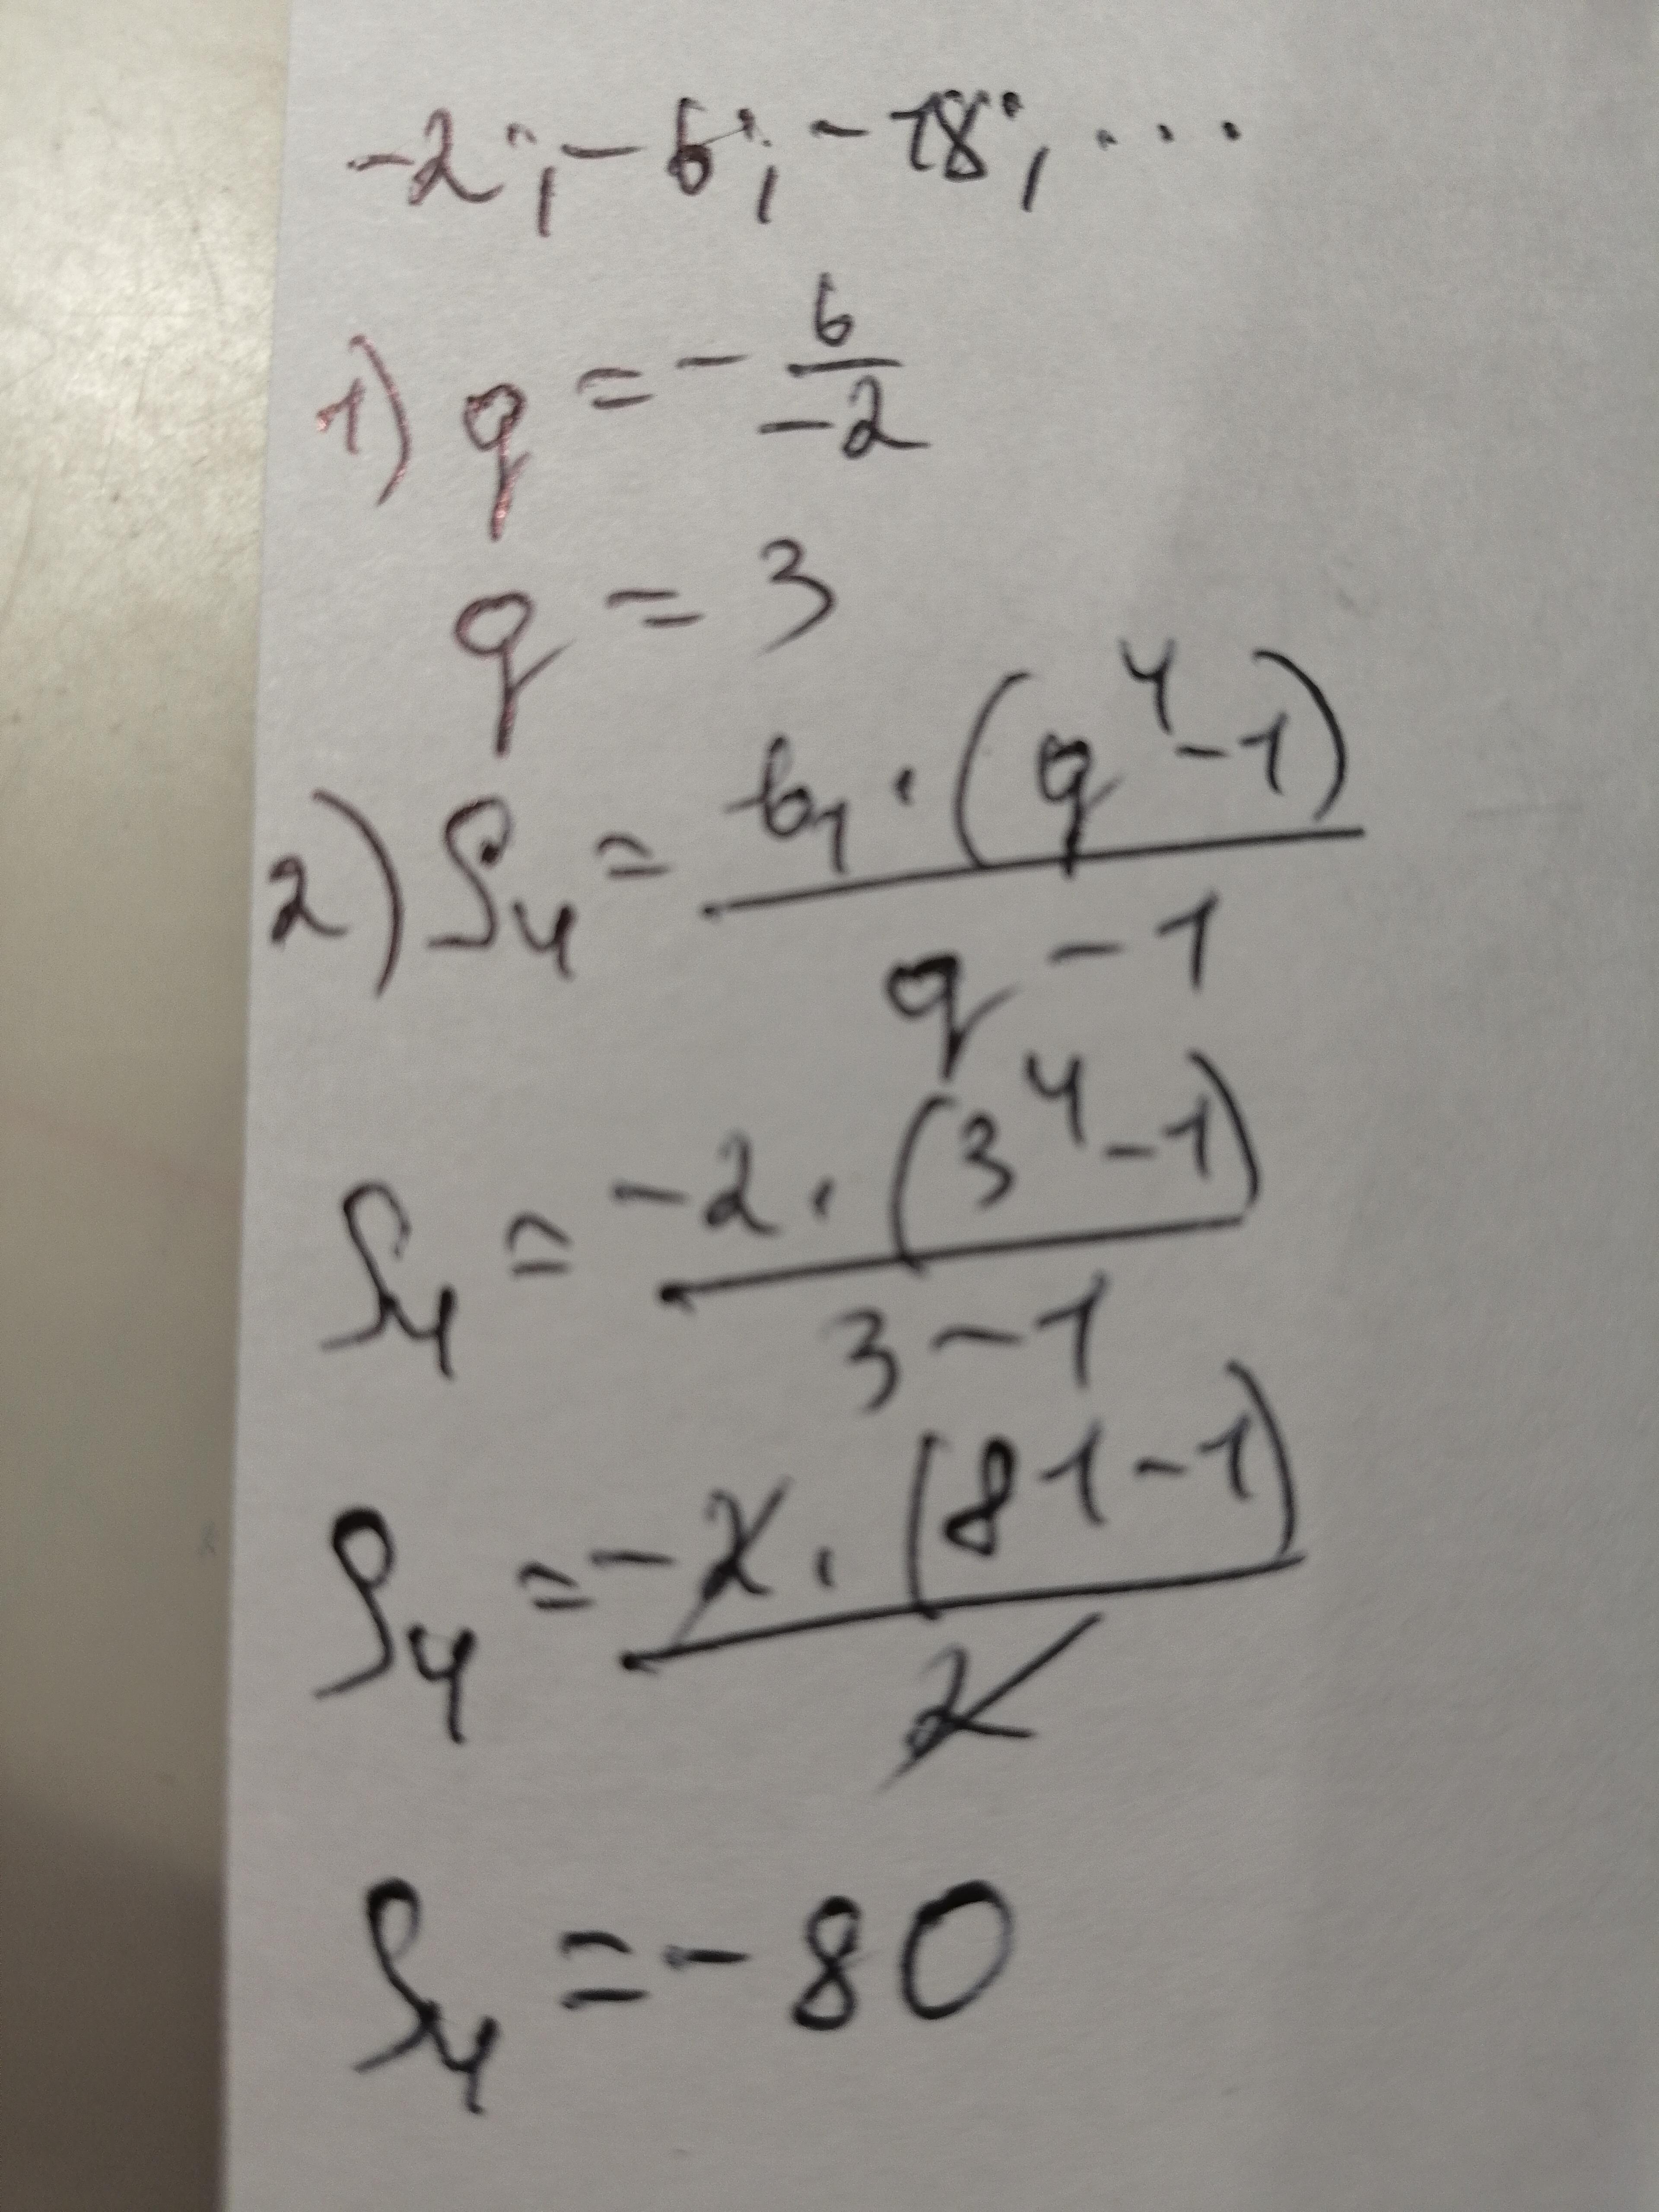 -2; -6; -18; ...
1) q = - 6/-2
q = 3
2) S₄ = b₁·(q⁴-1)/q-1
S₄ = -2·(3⁴-1)/3-1
S₄ = -2·(81-1)/2
S₄ = -80